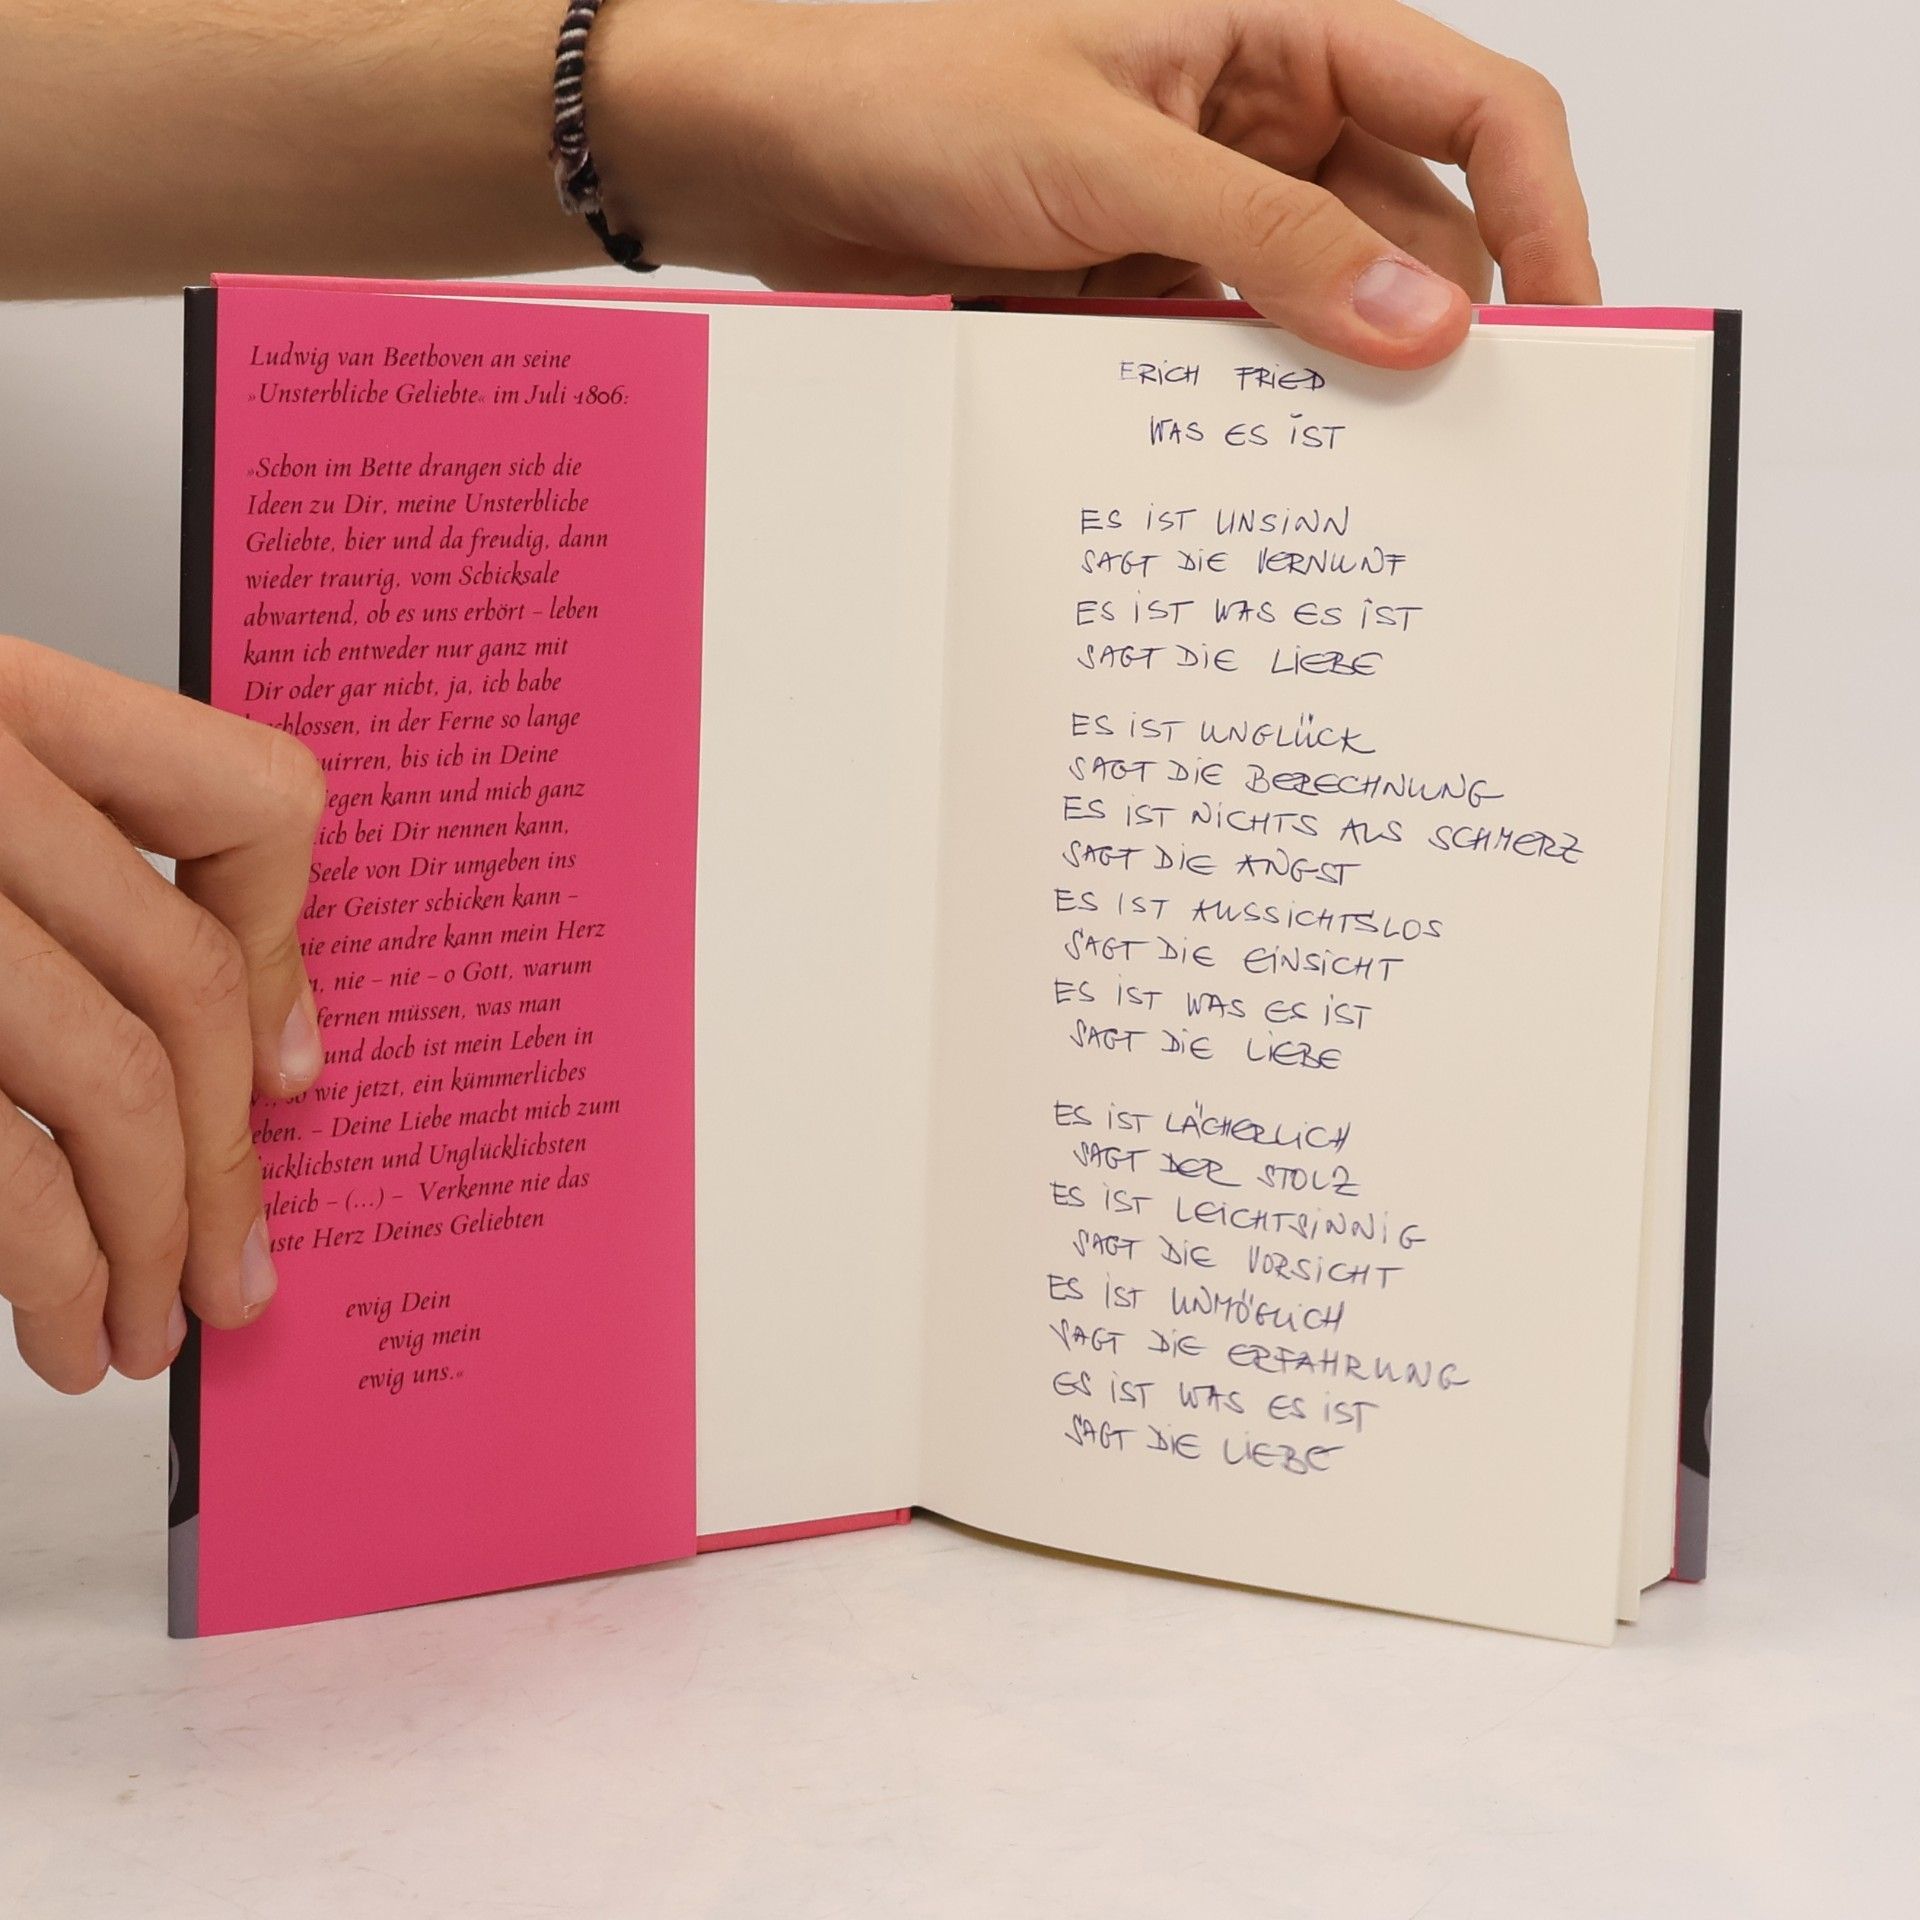 Ludwig van Beethoven an seine
»Unsterbliche Geliebte« im Juli 1806:
»Schon im Bette drangen sich die
Ideen zu Dir, meine Unsterbliche
Geliebte, hier und da freudig, dann
wieder traurig, vom Schicksale
abwartend, ob es uns erhört – leben
kann ich entweder nur ganz mit
Dir oder gar nicht, ja, ich habe
in der Ferne so lange
bis ich in Deine
kann und mich ganz
bei Dir nennen kann,
Seele von Dir umgeben ins
der Geister schicken kann –
eine andre kann mein Herz
nie – nie – o Gott, warum
müssen, was man
und doch ist mein Leben in
wie jetzt, ein kümmerliches
– Deine Liebe macht mich zum
und Unglücklichsten
– (...) – Verkenne nie das
Herz Deines Geliebten
ewig Dein
ewig mein
ewig uns.«
ERICH FRIED
WAS ES IST
ES IST UNSINN
SAGT DIE VERNUNF
ES IST WAS ES IST
SAGT DIE LIEBE
ES IST UNGLÜCK
SAGT DIE BERECHNUNG
ES IST NICHTS ALS SCHMERZ
SAGT DIE ANGST
ES IST AUSSICHTSLOS
SAGT DIE EINSICHT
ES IST WAS ES IST
SAGT DIE LIEBE
ES IST LÄCHERLICH
SAGT DER STOLZ
ES IST LEICHTSINNIG
SAGT DIE VORSICHT
ES IST UNMÖGLICH
SAGT DIE ERFAHRUNG
ES IST WAS ES IST
SAGT DIE LIEBE